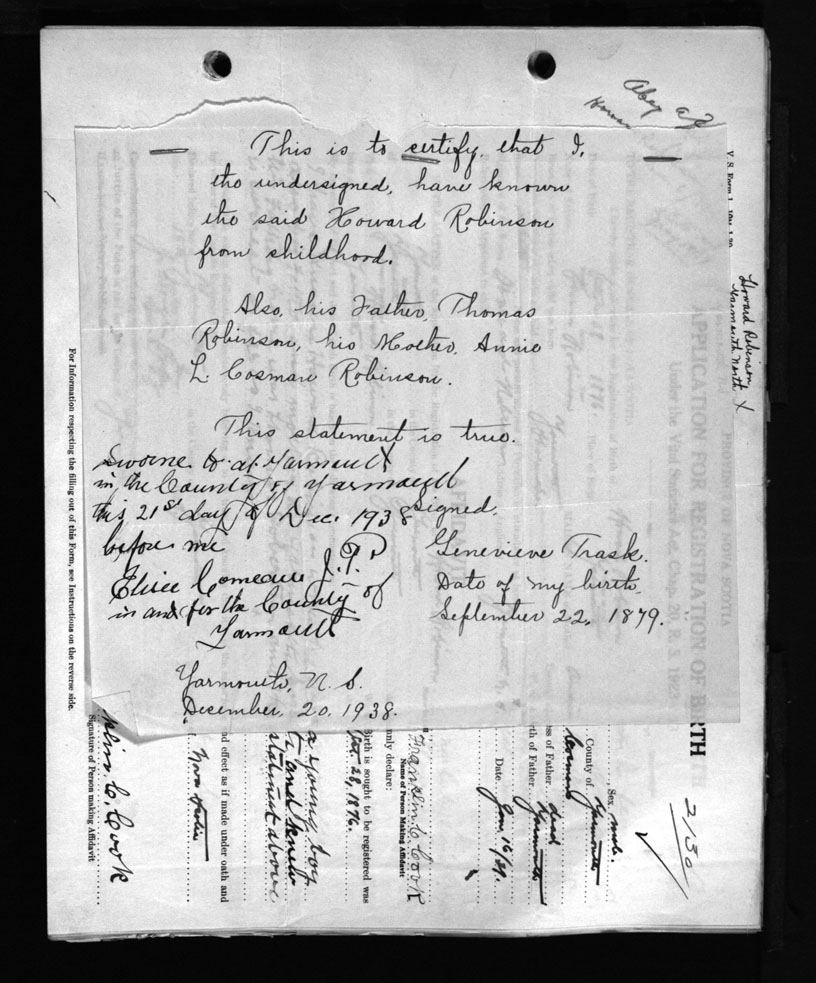 This is to certify, that I,
the undersigned, have known
the said Howard Robinson
from childhood.
Also, his Father, Thomas
Robinson, his Mother, Annie
L. Cosman Robinson.
This statement is true.
Sworne to at Yarmouth
in the County of Yarmouth
this 21st day of Dec. 1938
before me
Elisee Comeau J.P.
in and for the County of
Yarmouth
Signed.
Genevieve Trask.
Date of my birth.
September 22, 1879.
Yarmouth, N. S.
December, 20, 1938.
Howard Robinson
Yarmouth North X
V. S. Form 1
RTH
2130
Sex male
County of Yarmouth
ess of Father dead
rth of Father Yarmouth
Date Jan. 16/39.
Franklin C. Cook
Name of Person Making Affidavit
nnly declare:
Birth is sought to be registered was
Oct. 28, 1876.
a young boy
and knew
statement above
nd effect as if made under oath and
Nova Scotia
klin C. Cook
Signature of Person making Affidavit
For Information respecting the filling out of this Form, see Instructions on the reverse side.